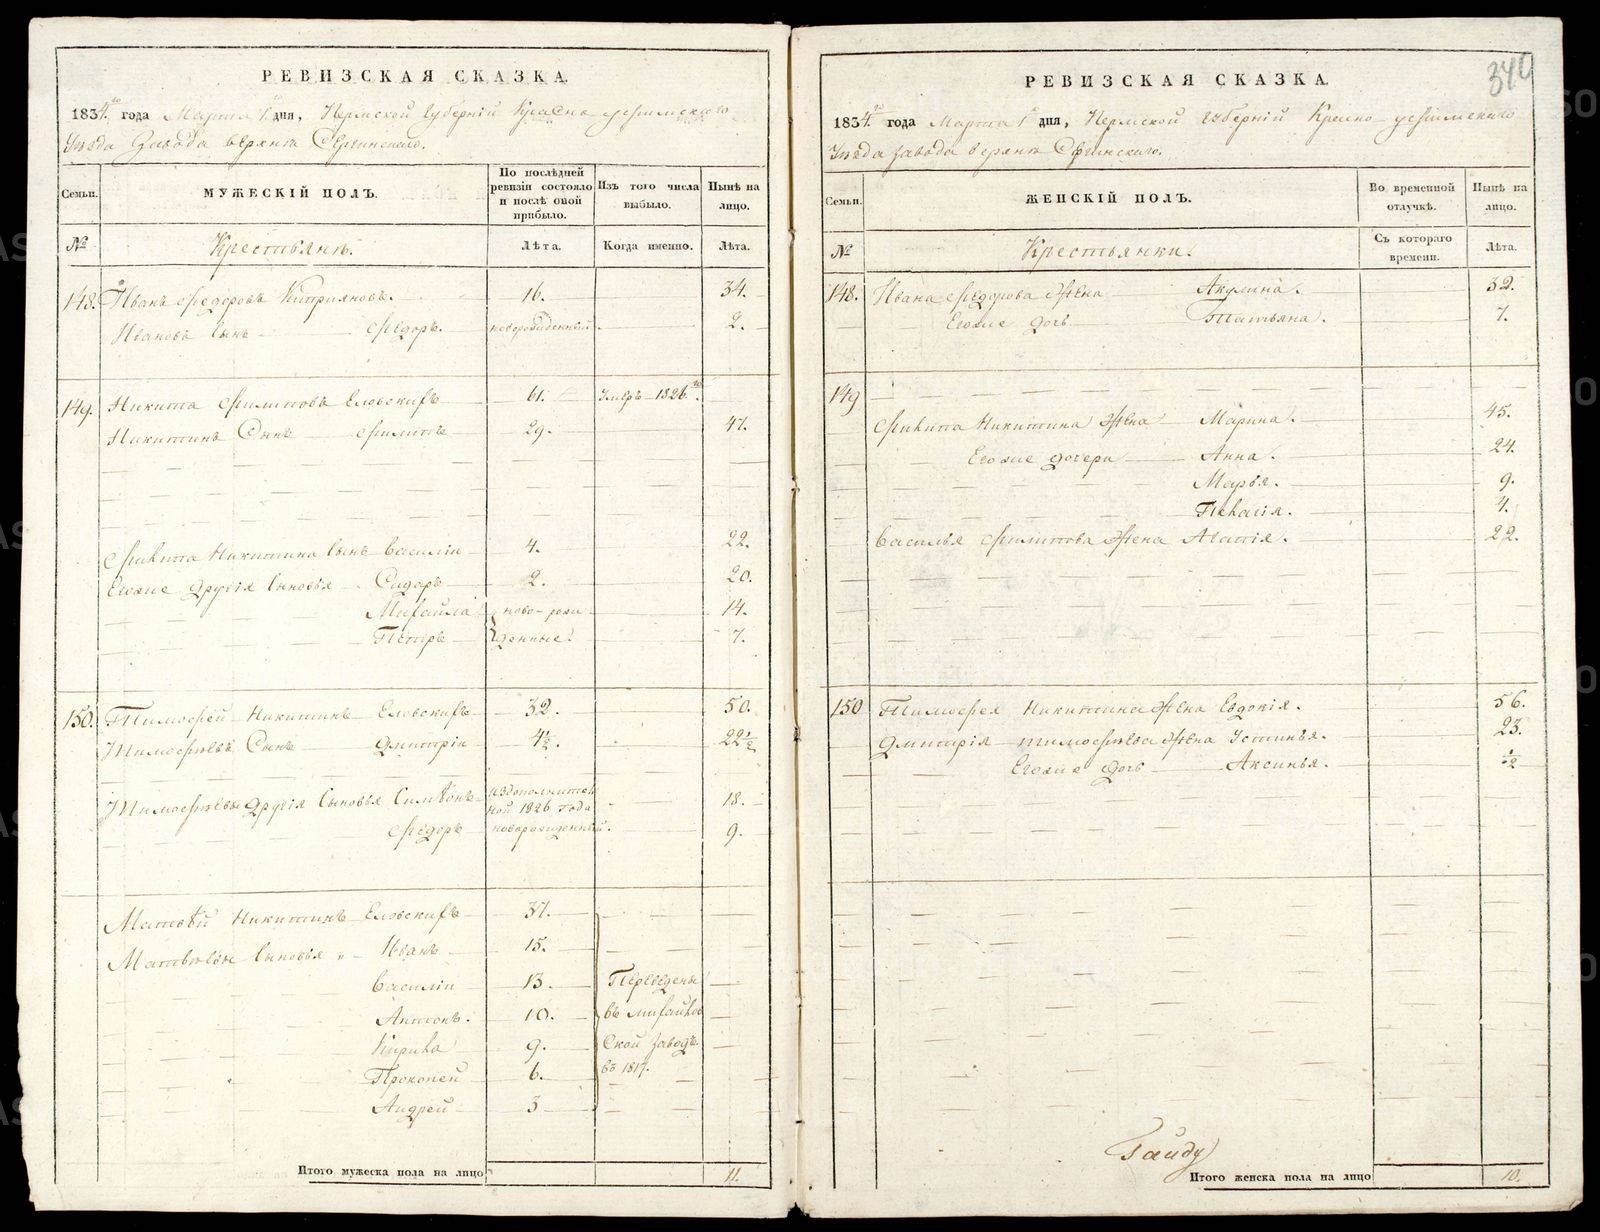 РЕВИЗСКАЯ СКАЗКА.
1834го года Марта 1 дня, Пермской Губерніи Красно-уфимскаго
Уѣзда Завода верхнѣ Сергинскаго.
Семьи. МУЖЕСКІЙ ПОЛЪ. По послѣдней ревизіи состояло и послѣ оной прибыло. Изъ того числа выбыло. Нынѣ на лицо.
№ Крестьянѣ. Лѣта. Когда именно. Лѣта.
148. Иванъ Федоровъ Киприяновъ. 16. 34.
Ивановъ Сынъ Федоръ. новорожденный 2.
149. Никита Филиповъ Еловскихъ 61. Умеръ 1826го.
Никитинъ Сынъ Филипъ 29. 47.
Филипа Никитина Сынъ Василіи 4. 22.
Егоже другія Сыновья Сидоръ 2. 20.
Михайла ново-рож 14.
Петръ денные. 7.
150. Тимофей Никитинъ Еловскихъ 32. 50.
Тимофѣевъ Сынъ Дмитріи 4½. 22½
Тимофѣевы другія Сыновья Симіонъ 1826 года 18.
Федоръ новорожденный. 9.
Матвѣй Никитинъ Еловскихъ 37.
Матвѣевы Сыновья Иванъ 15.
Василіи 13. Переведены
Антонъ. 10. въ Михайлов
Кирила 9. ской заводъ
Прокопей 6. въ 1817.
Андрей 3
Итого мужеска пола на лицо 11.
340
РЕВИЗСКАЯ СКАЗКА.
1834го года Марта 1 дня, Пермской Губерніи Красно-уфимскаго
Уѣзда завода верхнѣ Сергинскаго.
Семьи. ЖЕНСКІЙ ПОЛЪ. Во временной отлучкѣ. Нынѣ на лицо.
№ Крестьянки. Съ котораго времени. Лѣта.
148. Ивана Федорова Жена Акулина. 32.
Егоже дочь Татьяна. 7.
149
Филипа Никитина Жена Марина. 45.
Егоже дочери Анна. 24.
Марья. 9.
Пелагія. 4.
Василья Филипова Жена Агапія. 22.
150 Тимофея Никитина Жена Евдокія. 56.
Дмитрія Тимофѣева Жена Устинья. 23.
Егоже дочь Аксинья. ½
Итого женска пола на лицо 10.